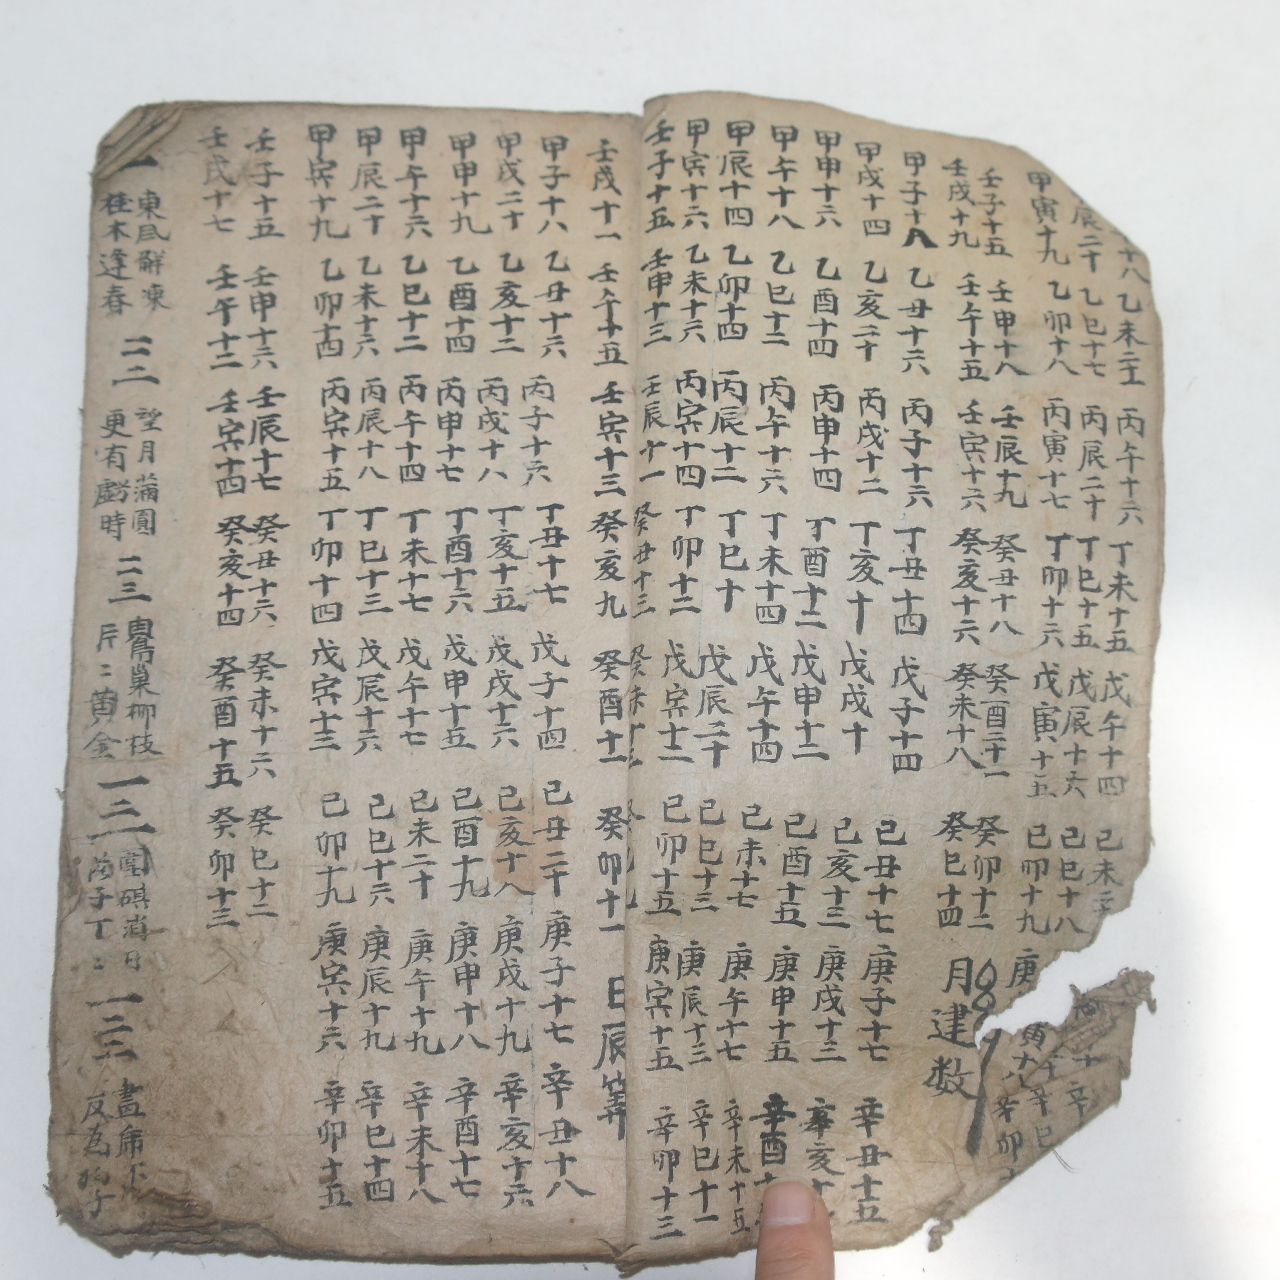 十八 乙未二十 丙午十六 丁未十五 戊午十四 己未二十
辰二十 乙巳十七 丙辰二十 丁巳十五 戊辰十六 己巳十八
甲寅十九 乙卯十八 丙寅十七 丁卯十六 戊寅十五 己卯十九 庚寅十八 辛卯
壬子十五 壬申十八 壬辰十九 癸丑十八 癸酉二十一 癸卯十二
壬戌十九 壬午十五 壬寅十六 癸亥十六 癸未十八 癸巳十四 月建数
甲子十八 乙丑十六 丙子十六 丁丑十四 戊子十四 己丑十七 庚子十七 辛丑十五
甲戌十四 乙亥二十 丙戌十二 丁亥十 戊戌十 己亥十三 庚戌十三 辛亥十
甲申十六 乙酉十四 丙申十四 丁酉十二 戊申十二 己酉十五 庚申十五 辛酉
甲午十八 乙巳十二 丙午十六 丁未十四 戊午十四 己未十七 庚午十七 辛未十五
甲辰十四 乙卯十四 丙辰十二 丁巳十 戊辰二十 己巳十三 庚辰十三 辛巳十一
甲寅十六 乙未十六 丙寅十四 丁卯十二 戊寅十二 己卯十五 庚寅十五 辛卯十三
壬子十五 壬申十三 壬辰十一 癸丑十三 癸未十
壬戌十一 壬午十五 壬寅十三 癸亥九 癸酉十一 癸卯十一 日辰筭
甲子十八 乙丑十六 丙子十六 丁丑十七 戊子十四 己丑二十 庚子十七 辛丑十八
甲戌二十 乙亥十二 丙戌十八 丁亥十五 戊戌十六 己亥十八 庚戌十九 辛亥十六
甲申十九 乙酉十四 丙申十七 丁酉十六 戊申十五 己酉十九 庚申十八 辛酉十七
甲午十六 乙巳十二 丙午十四 丁未十七 戊午十七 己未二十 庚午十九 辛未十八
甲辰二十 乙未十六 丙辰十八 丁巳十三 戊辰十六 己巳十六 庚辰十九 辛巳十四
甲寅十九 乙卯十四 丙寅十五 丁卯十四 戊寅十三 己卯十九 庚寅十六 辛卯十五
壬子十五 壬申十六 壬辰十七 癸丑十六 癸未十六 癸巳十二
壬戌十七 壬午十二 壬寅十四 癸亥十四 癸酉十五 癸卯十三
一一一 東風解凍
枯木逢春
一一二 望月蒲圓
更有虧時
一一三 鶯巢柳枝
片二黃金
一二一 圍碁消日
落子丁二
一二二 畫虎不
反為狗子